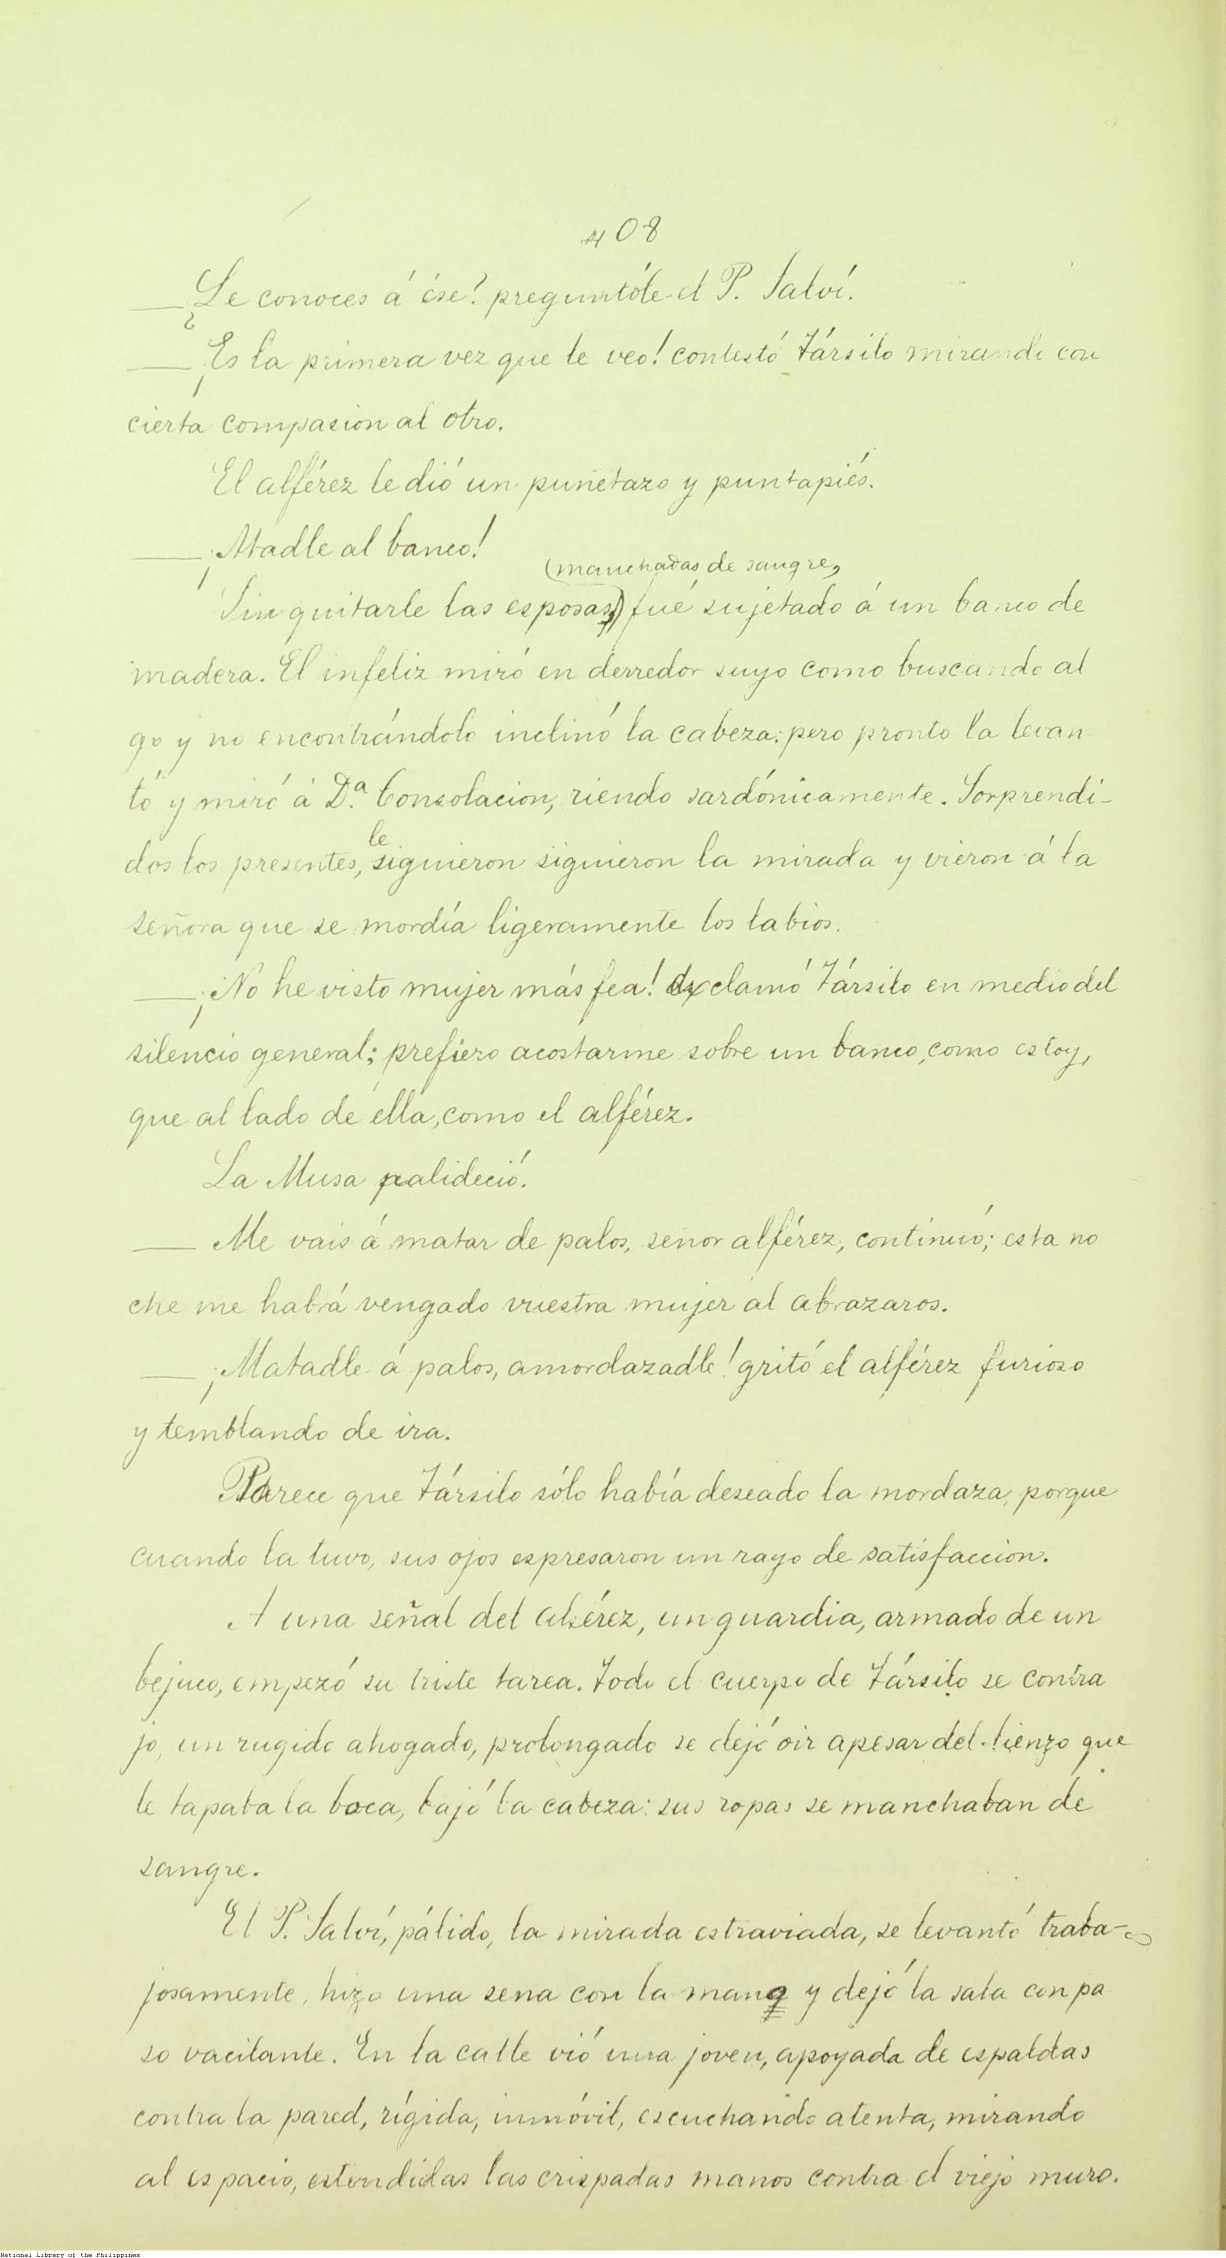 408
— ¿Le conoces á ése? preguntóle el P. Salví.
— ¡Es la primera vez que le veo! contestó Társilo mirando con
cierta compasion al otro.
El alférez le dió un puñetazo y puntapiés.
— ¡Atadle al banco!
(manchadas de sangre,
Sin quitarle las esposas) fué sujetado á un banco de
madera. El infeliz miró en derredor suyo como buscando al
go y no encontrándolo inclinó la cabeza: pero pronto la levan
tó y miró á D.ª Consolacion, riendo sardónicamente. Sorprendi-
le
dos los presentes, siguieron siguieron la mirada y vieron á la
señora que se mordía ligeramente los labios.
— ¡No he visto mujer más fea! exclamó Társilo en medio del
silencio general; prefiero acostarme sobre un banco, como estoy,
que al lado de ella, como el alférez.
La Musa palideció.
— Me vais á matar de palos, señor alférez, continuó; esta no
che me habrá vengado vuestra mujer al abrazaros.
— ¡Matadle á palos, amordazadle! gritó el alférez furioso
y temblando de ira.
Parece que Társilo sólo había deseado la mordaza, porque
cuando la tuvo, sus ojos espresaron un rayo de satisfaccion.
A una señal del alférez, un guardia, armado de un
bejuco, empezó su triste tarea. Todo el cuerpo de Társilo se contra
jo, un rugido ahogado, prolongado se dejó oir apesar del lienzo que
le tapaba la boca, bajó la cabeza: sus ropas se manchaban de
sangre.
El P. Salví, pálido, la mirada estraviada, se levantó traba-
josamente, hizo una sena con la mano y dejó la sala con pa
so vacilante. En la calle vió una joven, apoyada de espaldas
contra la pared, rígida, inmóvil, escuchando atenta, mirando
al espacio, estendidas las crispadas manos contra el viejo muro.
National Library of the Philippines